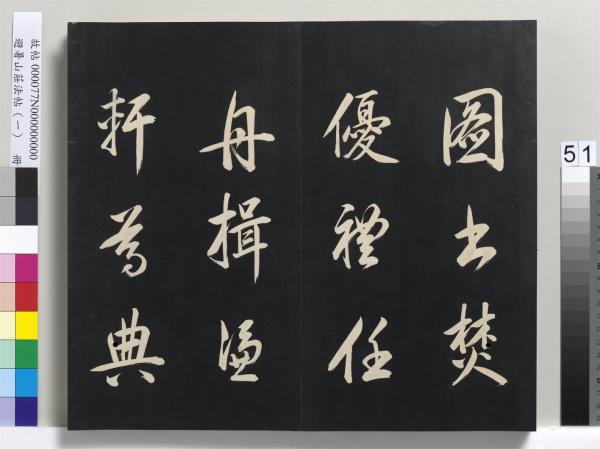 圖書焚
優禮任
舟揖
軒為典
故帖 000077N000000000
避暑山莊法帖（一） 冊
51